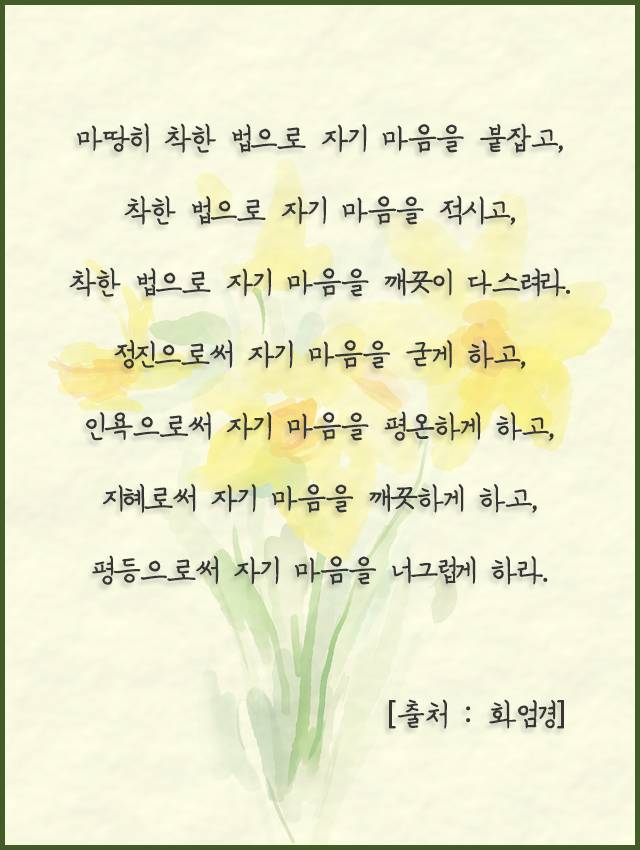 마땅히 착한 법으로 자기 마음을 붙잡고,
착한 법으로 자기 마음을 적시고,
착한 법으로 자기 마음을 깨끗이 다스려라.
정진으로써 자기 마음을 굳게 하고,
인욕으로써 자기 마음을 평온하게 하고,
지혜로써 자기 마음을 깨끗하게 하고,
평등으로써 자기 마음을 너그럽게 하라.
[출처 : 화엄경]